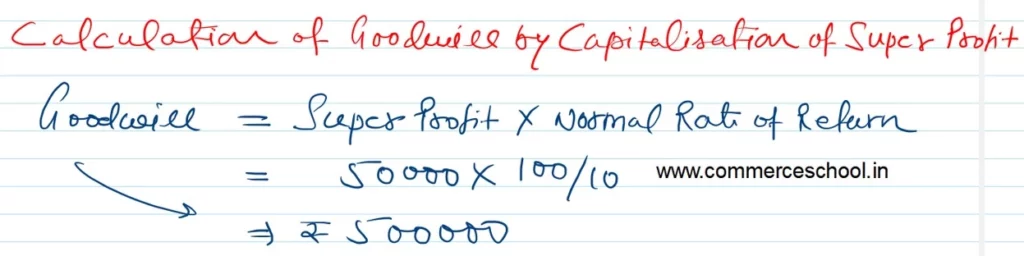 Calculation of Goodwill by Capitalisation of Super Profit
Goodwill = Super Profit X Normal Rate of Return
= 50000 X 100/10 www.commerceschool.in
⇒ ₹ 500000